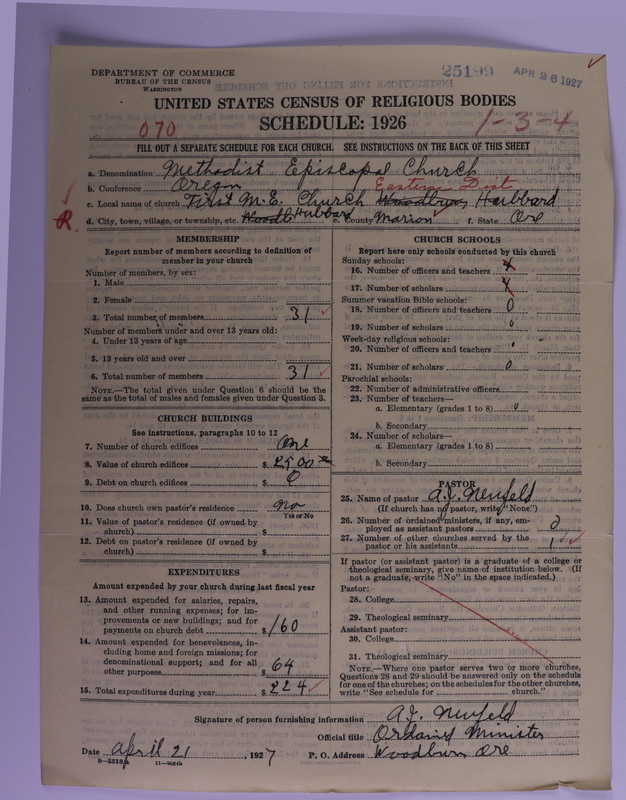 DEPARTMENT OF COMMERCE
BUREAU OF THE CENSUS
WASHINGTON
25199
APR 26 1927
UNITED STATES CENSUS OF RELIGIOUS BODIES
070
SCHEDULE: 1926
1-3-4
FILL OUT A SEPARATE SCHEDULE FOR EACH CHURCH. SEE INSTRUCTIONS ON THE BACK OF THIS SHEET
a. Denomination Methodist Episcopal Church
b. Conference Oregon Eastern Dist
c. Local name of church First M.E. Church Woodburn Hubbard
R.
d. City, town, village, or township, etc. Woodb Hubbard e. County Marion f. State Ore
MEMBERSHIP
Report number of members according to definition of
member in your church
Number of members, by sex:
1. Male
2. Female
3. Total number of members 31
Number of members under and over 13 years old:
4. Under 13 years of age
5. 13 years old and over
6. Total number of members 31
NOTE.—The total given under Question 6 should be the
same as the total of males and females given under Question 3.
CHURCH BUILDINGS
See instructions, paragraphs 10 to 12
7. Number of church edifices one
8. Value of church edifices $ 2500
9. Debt on church edifices $ 0
10. Does church own pastor's residence no
Yes or No
11. Value of pastor's residence (if owned by
church) $
12. Debt on pastor's residence (if owned by
church) $
EXPENDITURES
Amount expended by your church during last fiscal year
13. Amount expended for salaries, repairs,
and other running expenses; for im-
provements or new buildings; and for
payments on church debt $ 160
14. Amount expended for benevolences, in-
cluding home and foreign missions; for
denominational support; and for all
other purposes $ 64
15. Total expenditures during year $ 224
CHURCH SCHOOLS
Report here only schools conducted by this church
Sunday schools:
16. Number of officers and teachers
17. Number of scholars
Summer vacation Bible schools:
18. Number of officers and teachers 0
19. Number of scholars 0
Week-day religious schools:
20. Number of officers and teachers
21. Number of scholars 0
Parochial schools:
22. Number of administrative officers
23. Number of teachers—
a. Elementary (grades 1 to 8) 0
b. Secondary
24. Number of scholars—
a. Elementary (grades 1 to 8)
b. Secondary
PASTOR
25. Name of pastor A.J. Neufeld
(If church has no pastor, write "None")
26. Number of ordained ministers, if any, em-
ployed as assistant pastors 0
27. Number of other churches served by the
pastor or his assistants 1
If pastor (or assistant pastor) is a graduate of a college or
theological seminary, give name of institution below. (If
not a graduate, write "No" in the space indicated.)
Pastor:
28. College
29. Theological seminary
Assistant pastor:
30. College
31. Theological seminary
NOTE.—Where one pastor serves two or more churches,
Questions 28 and 29 should be answered only on the schedule
for one of the churches; on the schedules for the other churches,
write "See schedule for church."
Signature of person furnishing information A.J. Neufeld
Official title Ordained Minister
Date April 21, 1927 P. O. Address Woodburn Ore